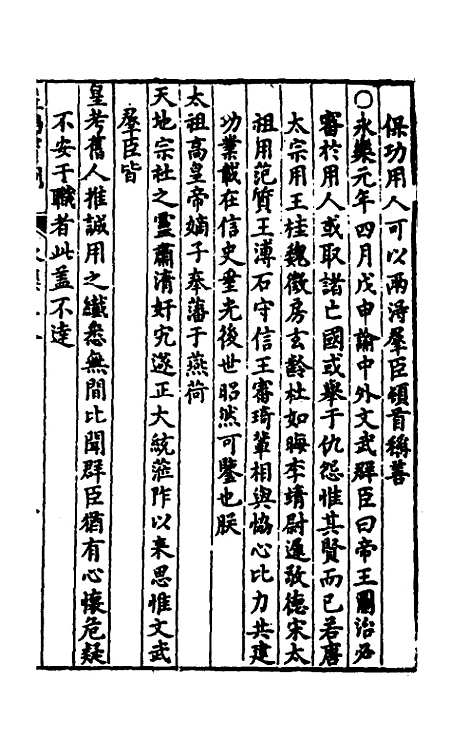 保功用人可以兩得羣臣頓首稱善
○永樂元年四月戊申諭中外文武群臣曰帝王圖治必
審於用人或取諸亡國或舉于仇怨惟其賢而已若唐
太宗用王珪魏徵房玄齡杜如晦李靖尉遲敬德宋太
祖用范質王溥石守信王審琦輩相與恊心比力共建
功業載在信史垂光後世昭然可鑒也朕
太祖高皇帝嫡子奉藩于燕荷
天地宗社之靈肅清奸宄遂正大統蒞阼以来思惟文武
羣臣皆
皇考舊人推誠用之纎悉無間比聞群臣猶有心懷危疑
不安于職者此盖不達